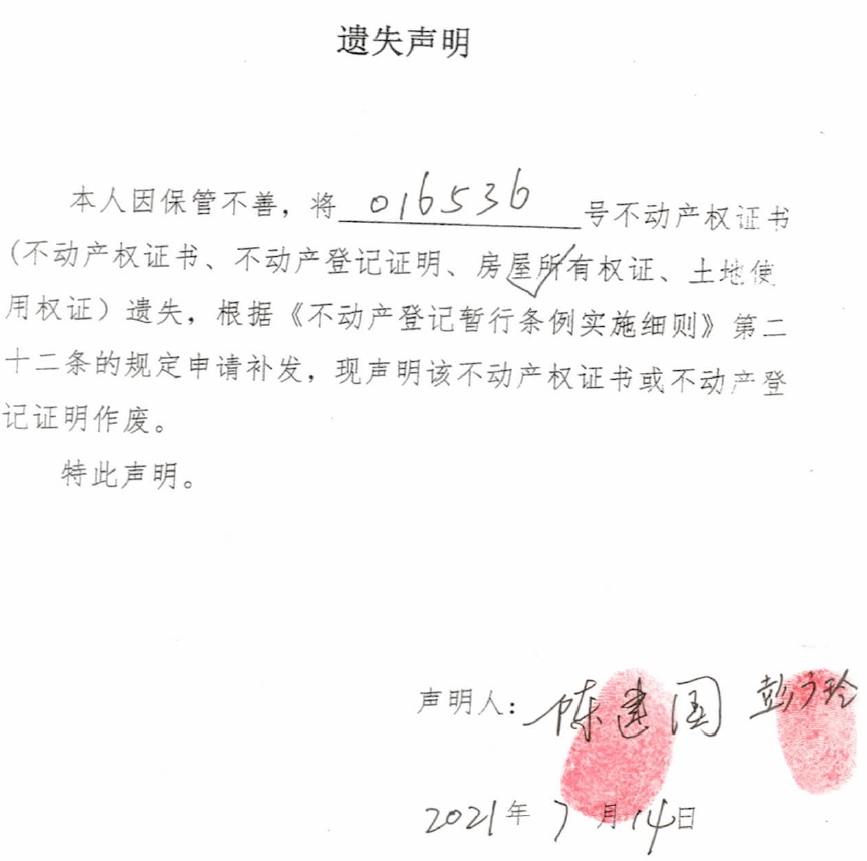 遗失声明
本人因保管不善，将016536号不动产权证书
(不动产权证书、不动产登记证明、房屋所有权证、土地使
用权证）遗失，根据《不动产登记暂行条例实施细则》第二
十二条的规定申请补发，现声明该不动产权证书或不动产登
记证明作废。
特此声明。
声明人：陈建国 彭玲
2021年7月14日